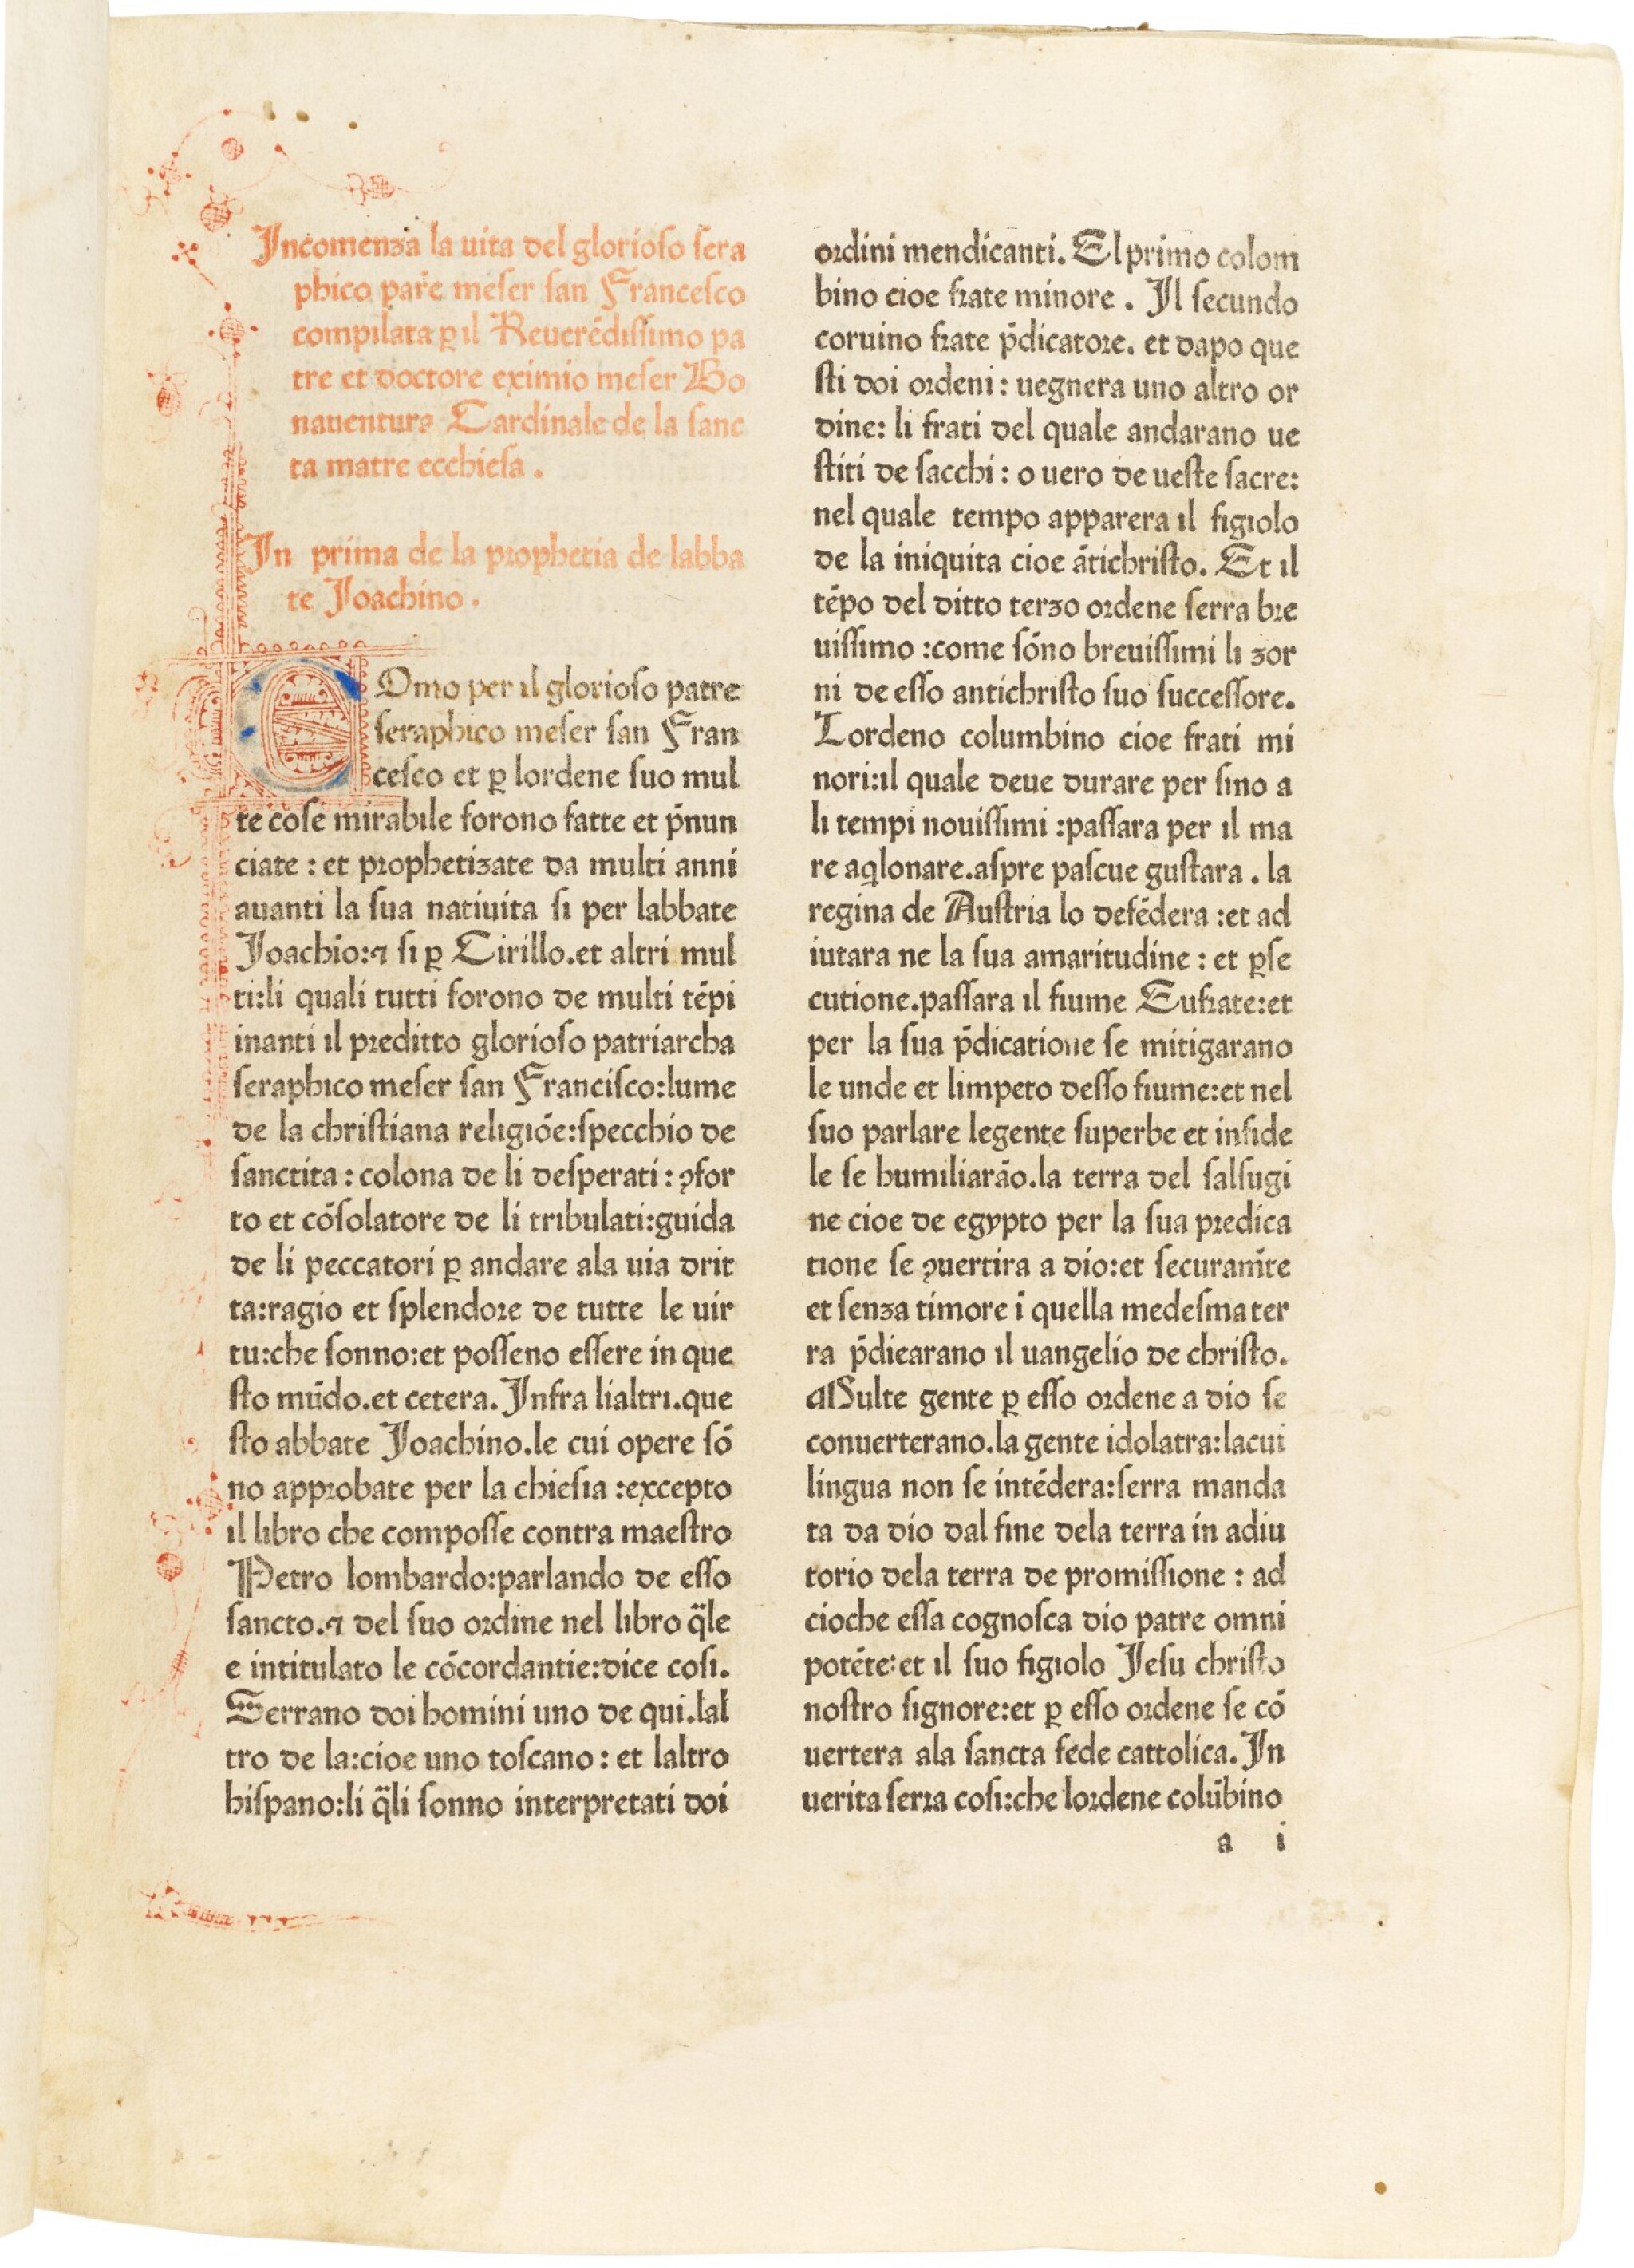 Incomenza la uita del glorioso sera
phico par̃e meser san Francesco
compilata ꝑ il Reuerẽdissimo pa
tre et doctore eximio meser Bo
nauentura Cardinale de la sanc
ta matre ecchiesa .
In prima de la prophetia de labba
te Joachino .
COmo per il glorioso patre
seraphico meser san Fran
cesco et ꝑ lordene suo mul
te cose mirabile forono fatte et p̃nun
ciate : et prophetizate da multi anni
auanti la sua natiuita si per labbate
Joachĩo:⁊ si ꝑ Cirillo.et altri mul
ti:li quali tutti forono de multi tẽpi
inanti il preditto glorioso patriarcha
seraphico meser san Francisco:lume
de la christiana religiõe:specchio de
sanctita : colona de li desperati : ꝯfor
to et cõsolatore de li tribulati:guida
de li peccatori ꝑ andare ala uia drit
ta:ragio et splendore de tutte le uir
tu:che sonno:et posseno essere in que
sto mũdo.et cetera. Infra lialtri.que
sto abbate Joachino.le cui opere sõ
no approbate per la chiesia :excepto
il libro che composse contra maestro
Petro lombardo:parlando de esso
sancto.⁊ del suo ordine nel libro q̃le
e intitulato le cõcordantie:dice cosi.
Serrano doi homini uno de qui.lal
tro de la:cioe uno toscano : et laltro
hispano:li q̃li sonno interpretati doi
ordini mendicanti. El primo colom
bino cioe frate minore . Il secundo
coruino frate p̃dicatore. et dapo que
sti doi ordeni : uegnera uno altro or
dine: li frati del quale andarano ue
stiti de sacchi : o uero de ueste sacre:
nel quale tempo apparera il figiolo
de la iniquita cioe ãtichristo. Et il
tẽpo del ditto terzo ordene serra bre
uissimo :come sõno breuissimi li zor
ni de esso antichristo suo successore.
Lordeno columbino cioe frati mi
nori:il quale deue durare per sino a
li tempi nouissimi :passara per il ma
re aq̃lonare.aspre pascue gustara . la
regina de Austria lo defẽdera :et ad
iutara ne la sua amaritudine : et ꝑse
cutione.passara il fiume Eufrate:et
per la sua p̃dicatione se mitigarano
le unde et limpeto desso fiume:et nel
suo parlare legente superbe et infide
le se humiliarão.la terra del salsugi
ne cioe de egypto per la sua predica
tione se ꝯuertira a dio:et securam̃te
et senza timore ĩ quella medesma ter
ra p̃diearano il uangelio de christo.
Multe gente ꝑ esso ordene a dio se
conuerterano.la gente idolatra:lacui
lingua non se intẽdera:serra manda
ta da dio dal fine dela terra in adiu
torio dela terra de promissione : ad
cioche essa cognosca dio patre omni
potẽte:et il suo figiolo Jesu christo
nostro signore:et ꝑ esso ordene se cõ
uertera ala sancta fede cattolica. In
uerita serra cosi:che lordene colũbino
a i